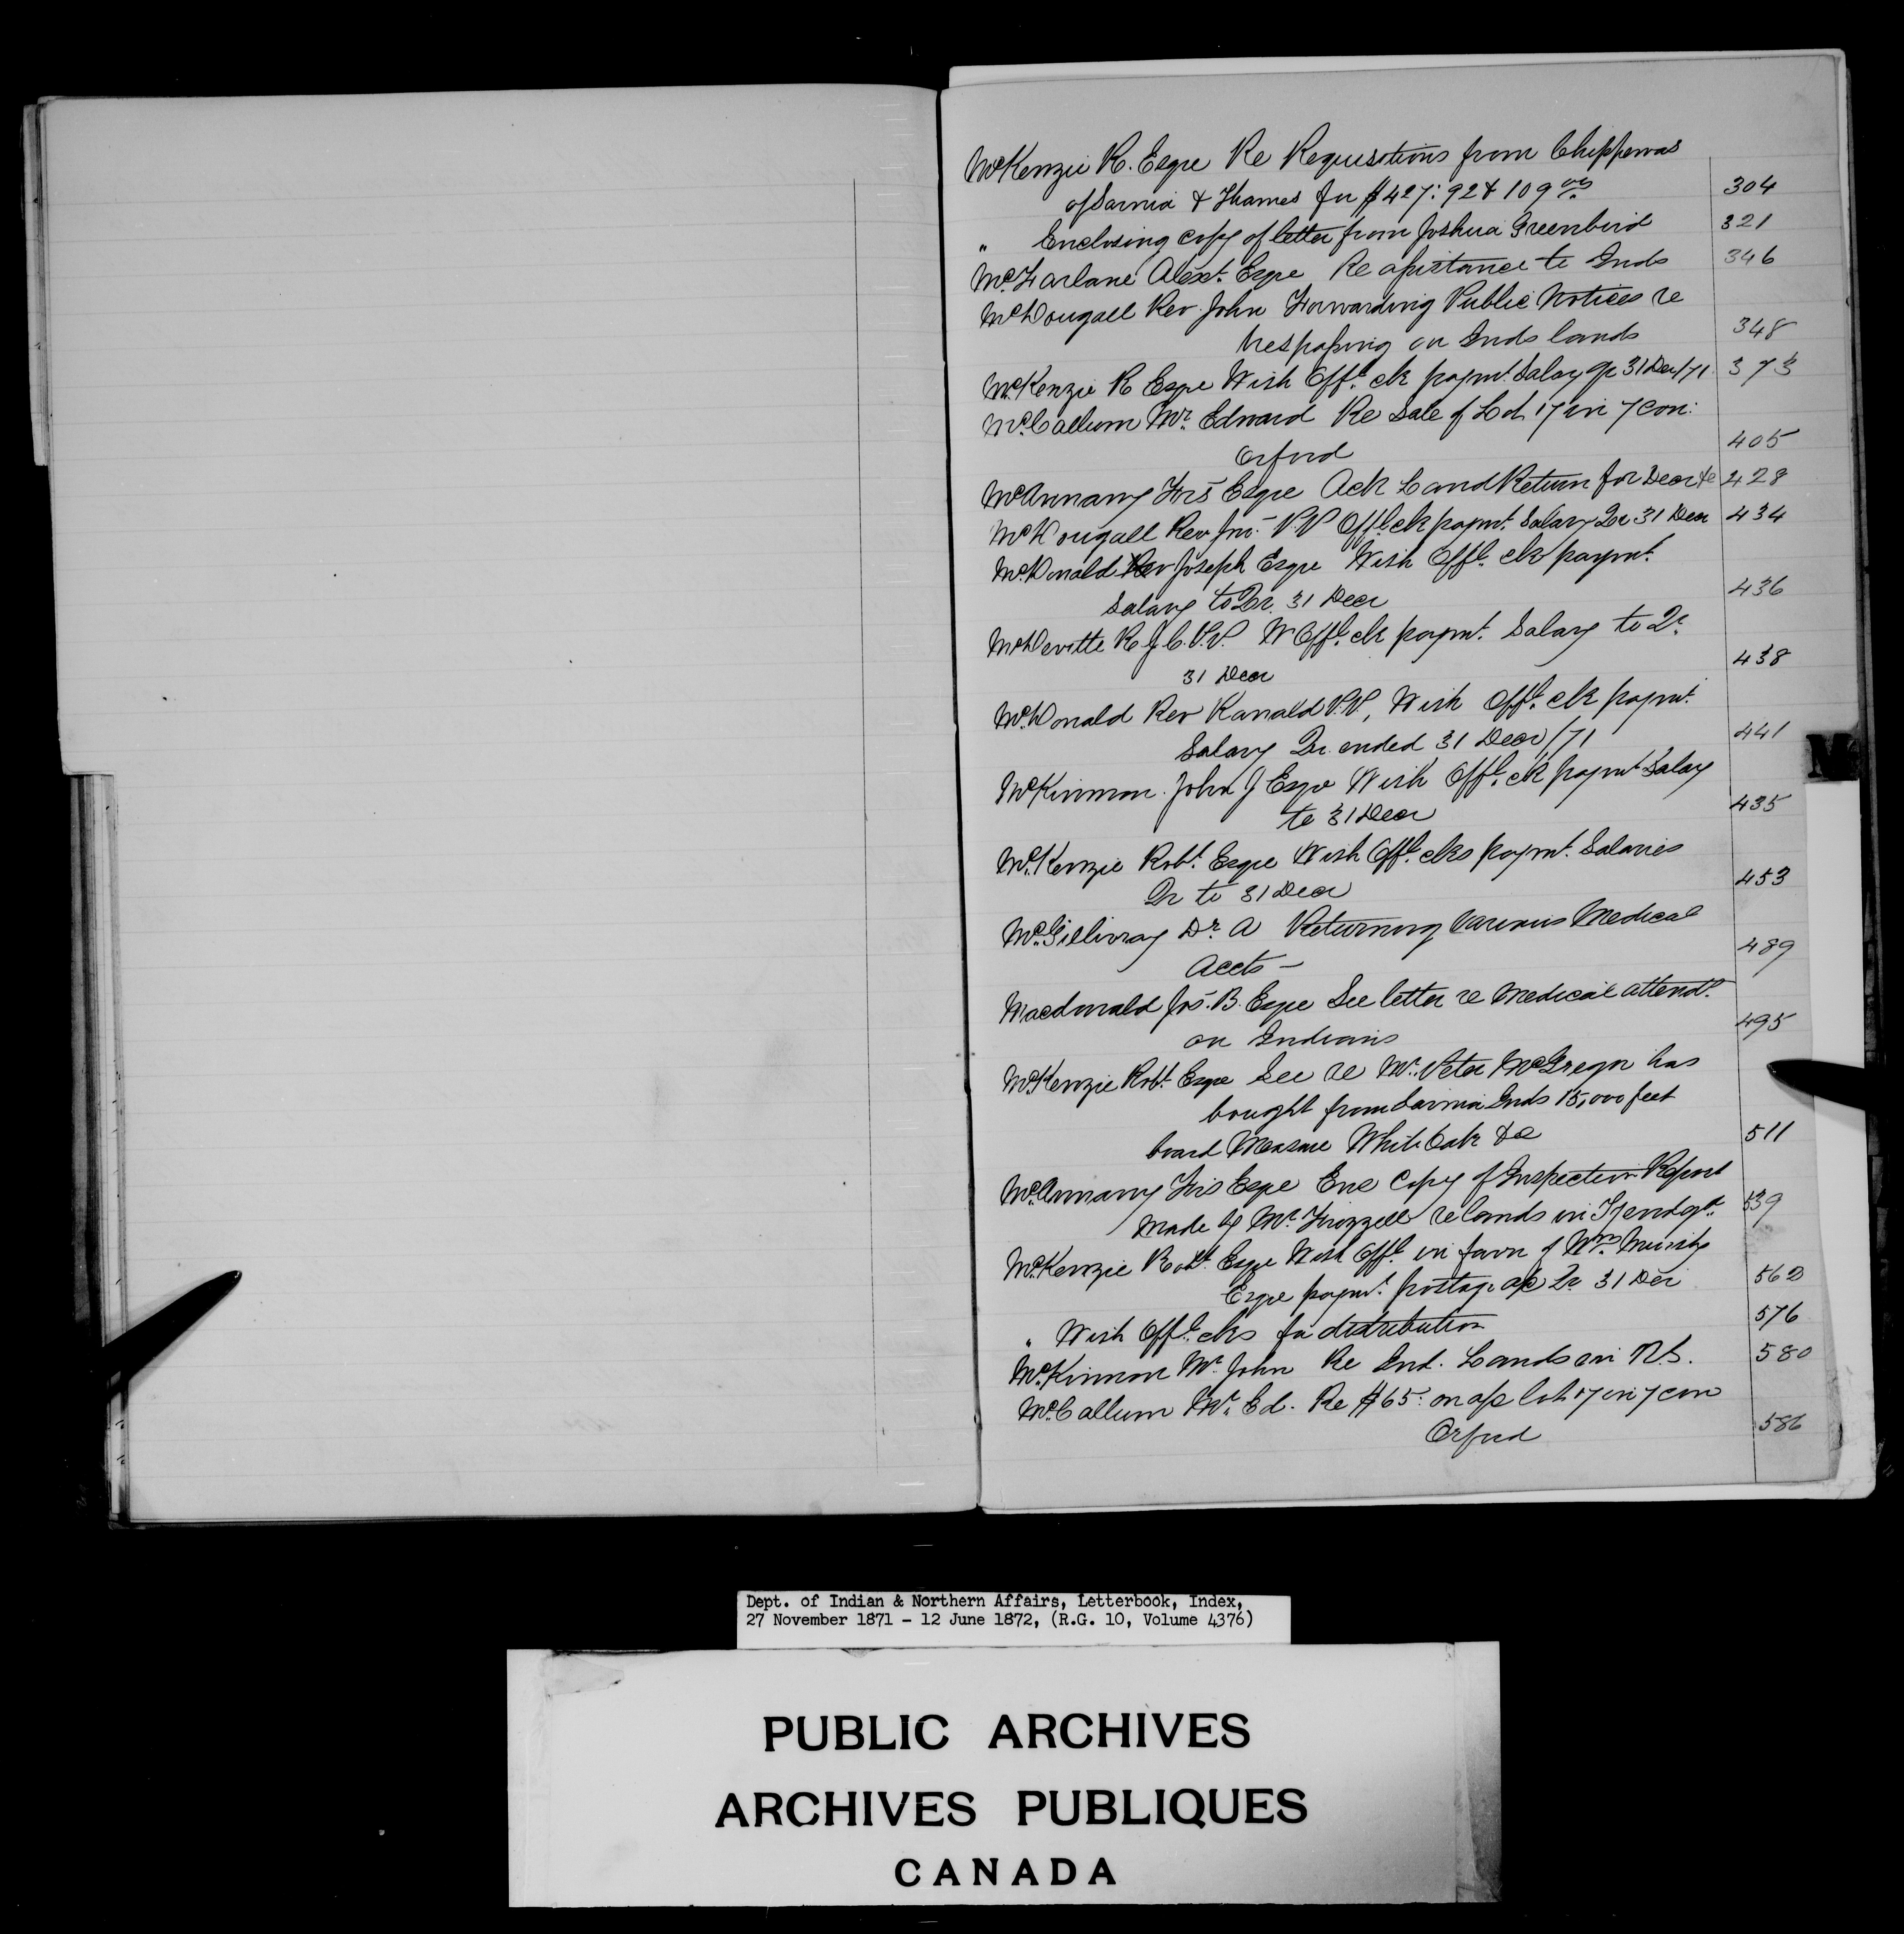 McKenzie R. Esqre Re Requisitions from Chippewas
of Sarnia & Thames for $427:92 & 109 304
" Enclosing copy of letter from Joshua Greenbird 321
McFarlane Alexr. Esqre Re assistance to Inds 346
McDougall Rev. John Forwarding Public Notices re
trespassing on Inds lands 348
McKenzie R Esqre With Offl. ck paymt. Salary Qr 31 Decr/71 373
McCallum Mr. Edward Re Sale of Lot 17 in 7 Con:
Orford 405
McAnnany Frs Esqre Ack Land Return for Decr &c 428
McDougall Rev Jno. P.P Offl. ck paymt. Salary Qr 31 Decr 434
McDonald Rev Joseph Esqre With Offl. ck paymt.
Salary to Qr. 31 Decr 436
McDevitte R J. C. P.P. W Offl. ck paymt. Salary to Qr.
31 Decr 438
McDonald Rev Ranald P.P, With Offl. ck paymt.
Salary Qr. ended 31 Decr/71 441
McKinnon. John J Esqre With Offl. ck paymt Salary
to 31 Decr 435
McKenzie Robt. Esqre With Offl. cks paymt. Salaries
Qr to 31 Decr 453
McGillivray Dr. A Returning various Medical
Accts — 489
Macdonald Jos. B. Esqre See letter re Medical attendce.
on Indians 495
McKenzie Robt. Esqre See re Mr. Peter McGregor has
bought from Sarnia Inds 15,000 feet
board Measure White Oak &c 511
McAnnany Frs Esqre Enc Copy of Inspection Report
Made by Mr. Frizzell re lands in Tyendga. 539
McKenzie Robt. Esqre With Offl. in favor of Wm.
Esqre paymt. postage a/c Qr. 31 Decr 562
" With Offl. cks for distribution 576
McKinnon Mr. John Re Ind. Lands in N.S. 580
McCallum Mr. Ed. Re $65: on a/c lot 17 in 7 con
Orford 586
M
Dept. of Indian & Northern Affairs, Letterbook, Index,
27 November 1871 - 12 June 1872, (R.G. 10, Volume 4376)
PUBLIC ARCHIVES
ARCHIVES PUBLIQUES
CANADA